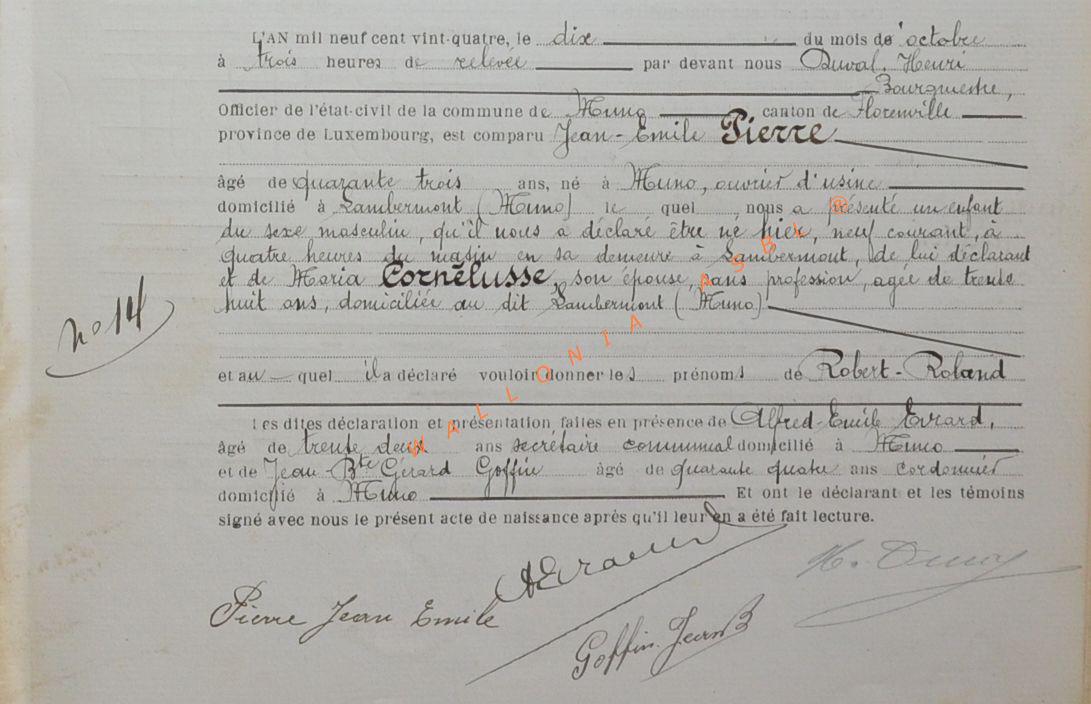 L'AN mil neuf cent vint-quatre, le dix du mois de octobre
à trois heures de relevée par devant nous Duval, Henri
Bourgmestre,
Officier de l'état-civil de la commune de Muno canton de Florenville
province de Luxembourg, est comparu Jean-Emile Pierre
âgé de quarante trois ans, né à Muno, ouvrier d'usine
domicilié à Lambermont (Muno) le quel nous a présenté un enfant
du sexe masculin, qu'il nous a déclaré être né hier, neuf courant, à
quatre heures du matin en sa demeure à Lambermont, de lui déclarant
et de Maria Cornélusse, son épouse, sans profession, agée de trente
huit ans, domiciliée au dit Lambermont (Muno)
n° 14
et au quel il a déclaré vouloir donner les prénoms de Robert-Roland
Les dites déclaration et présentation faites en présence de Alfred-Emile Evrard,
âgé de trente deux ans secrétaire communal domicilié à Muno
et de Jean-Bte Gérard Goffin âgé de quarante quatre ans cordonnier
domicilié à Muno Et ont le déclarant et les témoins
signé avec nous le présent acte de naissance après qu'il leur en a été fait lecture.
AEvrard
Pierre Jean Emile
Goffin Jean B
WALLONIA ASBL ®